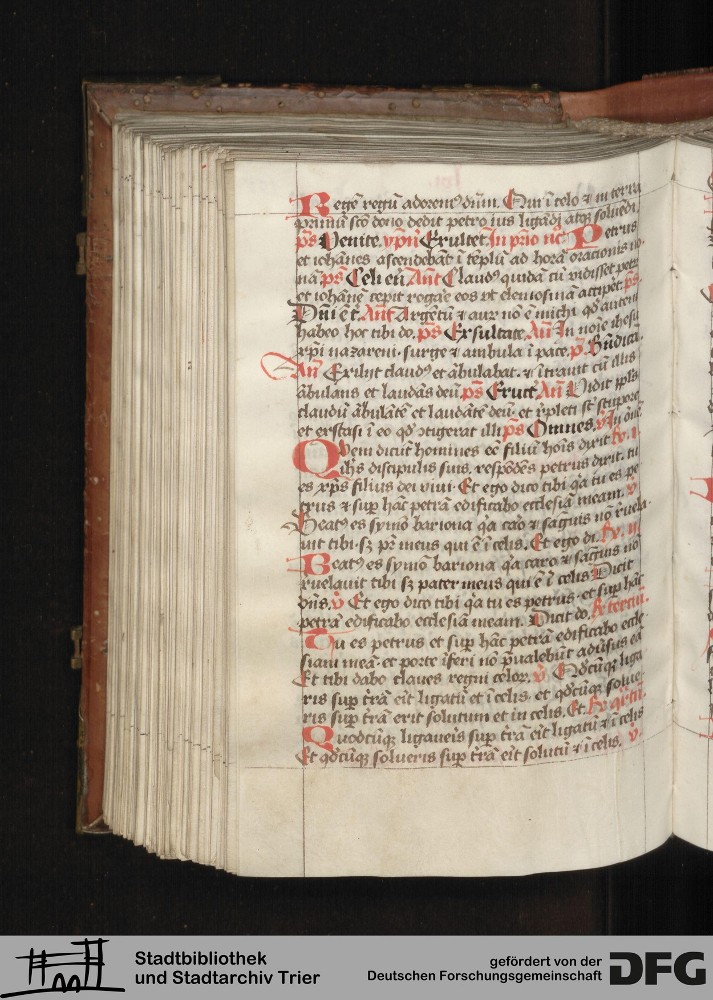 Regē regū adorem⁹ dūm. Qui ī celo ⁊ in terra
primū scō dono dedit petro ius ligādi atqꝫ soluēdi.
p̄s Venite. ypn̄ Exultet. In prīo nc̄. Petrus
et iohānes ascendebāt ī tēplū ad horā oracionis no
nā p̄s Celi en̄ Ant Claud⁹ quidā cū vidisset petr
et iohānē cepit rogāe eos vt elemosinā acciꝑet. p̄s
Dn̄i ē t̄. Ant Argētū ⁊ aur nō ē michi qd̄ autem
habeo hoc tibi do. p̄s Exsultate. An̄ In noīe ihesu
xp̄i nazareni. surge ⁊ ambula ī pace. p̄ Bn̄dicā
An̄ Exiluit claud⁹ et ābulabat. ⁊ ītrauit cū illis
ābulans et laudās deū p̄s Eruct An̄ Vidit pp̄ls
claudū ābulātē et laudātē deū. et īpleti st̄ stupore
et extasi ī eo qd̄ ꝯtigerat illi p̄s Omnes. v̄ In ōnē
Qvem dicūt homines eē filiū hoīs dixit ꝶv. i.
ih̄s discipulis suis. respōdēs petrus dixit. tu
es xp̄s filius dei viui. Et ego dico tibi q̄a tu es pe
trus ⁊ suꝑ hāc petrā edificabo ecclesiā meam. v̄
Beat⁹ es symō bariona q̄a caro ⁊ sagnis nō r̄uela
uit tibi. sꝫ pr̄ meus qui ē ī celis. Et ego di. ꝶv. ii
Beat⁹ es symō bariona q̄a caro ⁊ sagnis nō
reuelauit tibi sꝫ pater meus qui ē ī celis Dicit
dn̄s. v̄ Et ego dico tibi q̄a tu es petrus. et suꝑ hāc
petrā edificabo ecclesiā meam. Dicit do. ꝶ terciū.
Tu es petrus et suꝑ hāc petrā edificabo eccle
siam meā. et porte īferi nō p̄ualebūt adūsus eā
Et tibi dabo claues regni celoꝝ. v̄ Qd̄cūqꝫ liga
ris suꝑ t̄rā eīt ligatū et ī celis. et qd̄cūqꝫ solue
ris suꝑ t̄rā erit solutum et in celis. Et ꝶv q̄rtū.
Quodcūqꝫ ligaueris suꝑ t̄rā eīt ligatū ⁊ ī celis
Et qd̄cūqꝫ solueris suꝑ t̄rā eīt solutū ⁊ ī celis. v̄
Stadtbibliothek
und Stadtarchiv Trier
gefördert von der
Deutschen Forschungsgemeinschaft
DFG